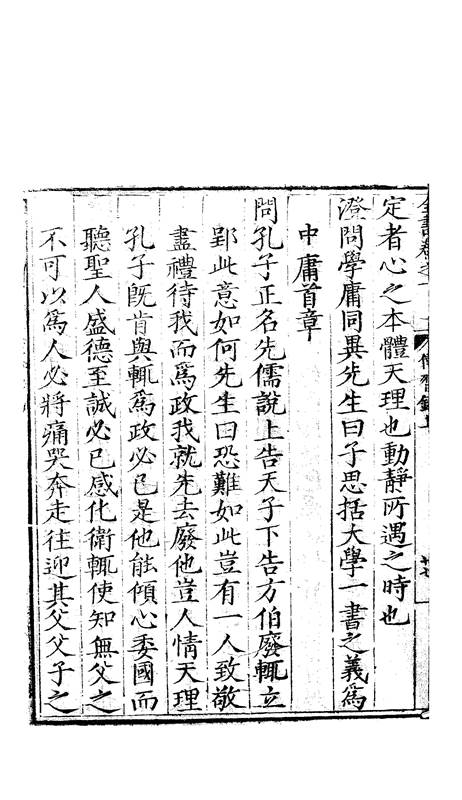 全書卷之一 傳習錄上
定者心之本體天理也動靜所遇之時也
澄問學庸同異先生曰子思括大學一書之義爲
中庸首章
問孔子正名先儒說上告天子下告方伯廢輒立
郢此意如何先生曰恐難如此豈有一人致敬
盡禮待我而爲政我就先去廢他豈人情天理
孔子旣肯與輒爲政必已是他能傾心委國而
聽聖人盛德至誠必已感化衛輒使知無父之
不可以爲人必將痛哭奔走往迎其父父子之